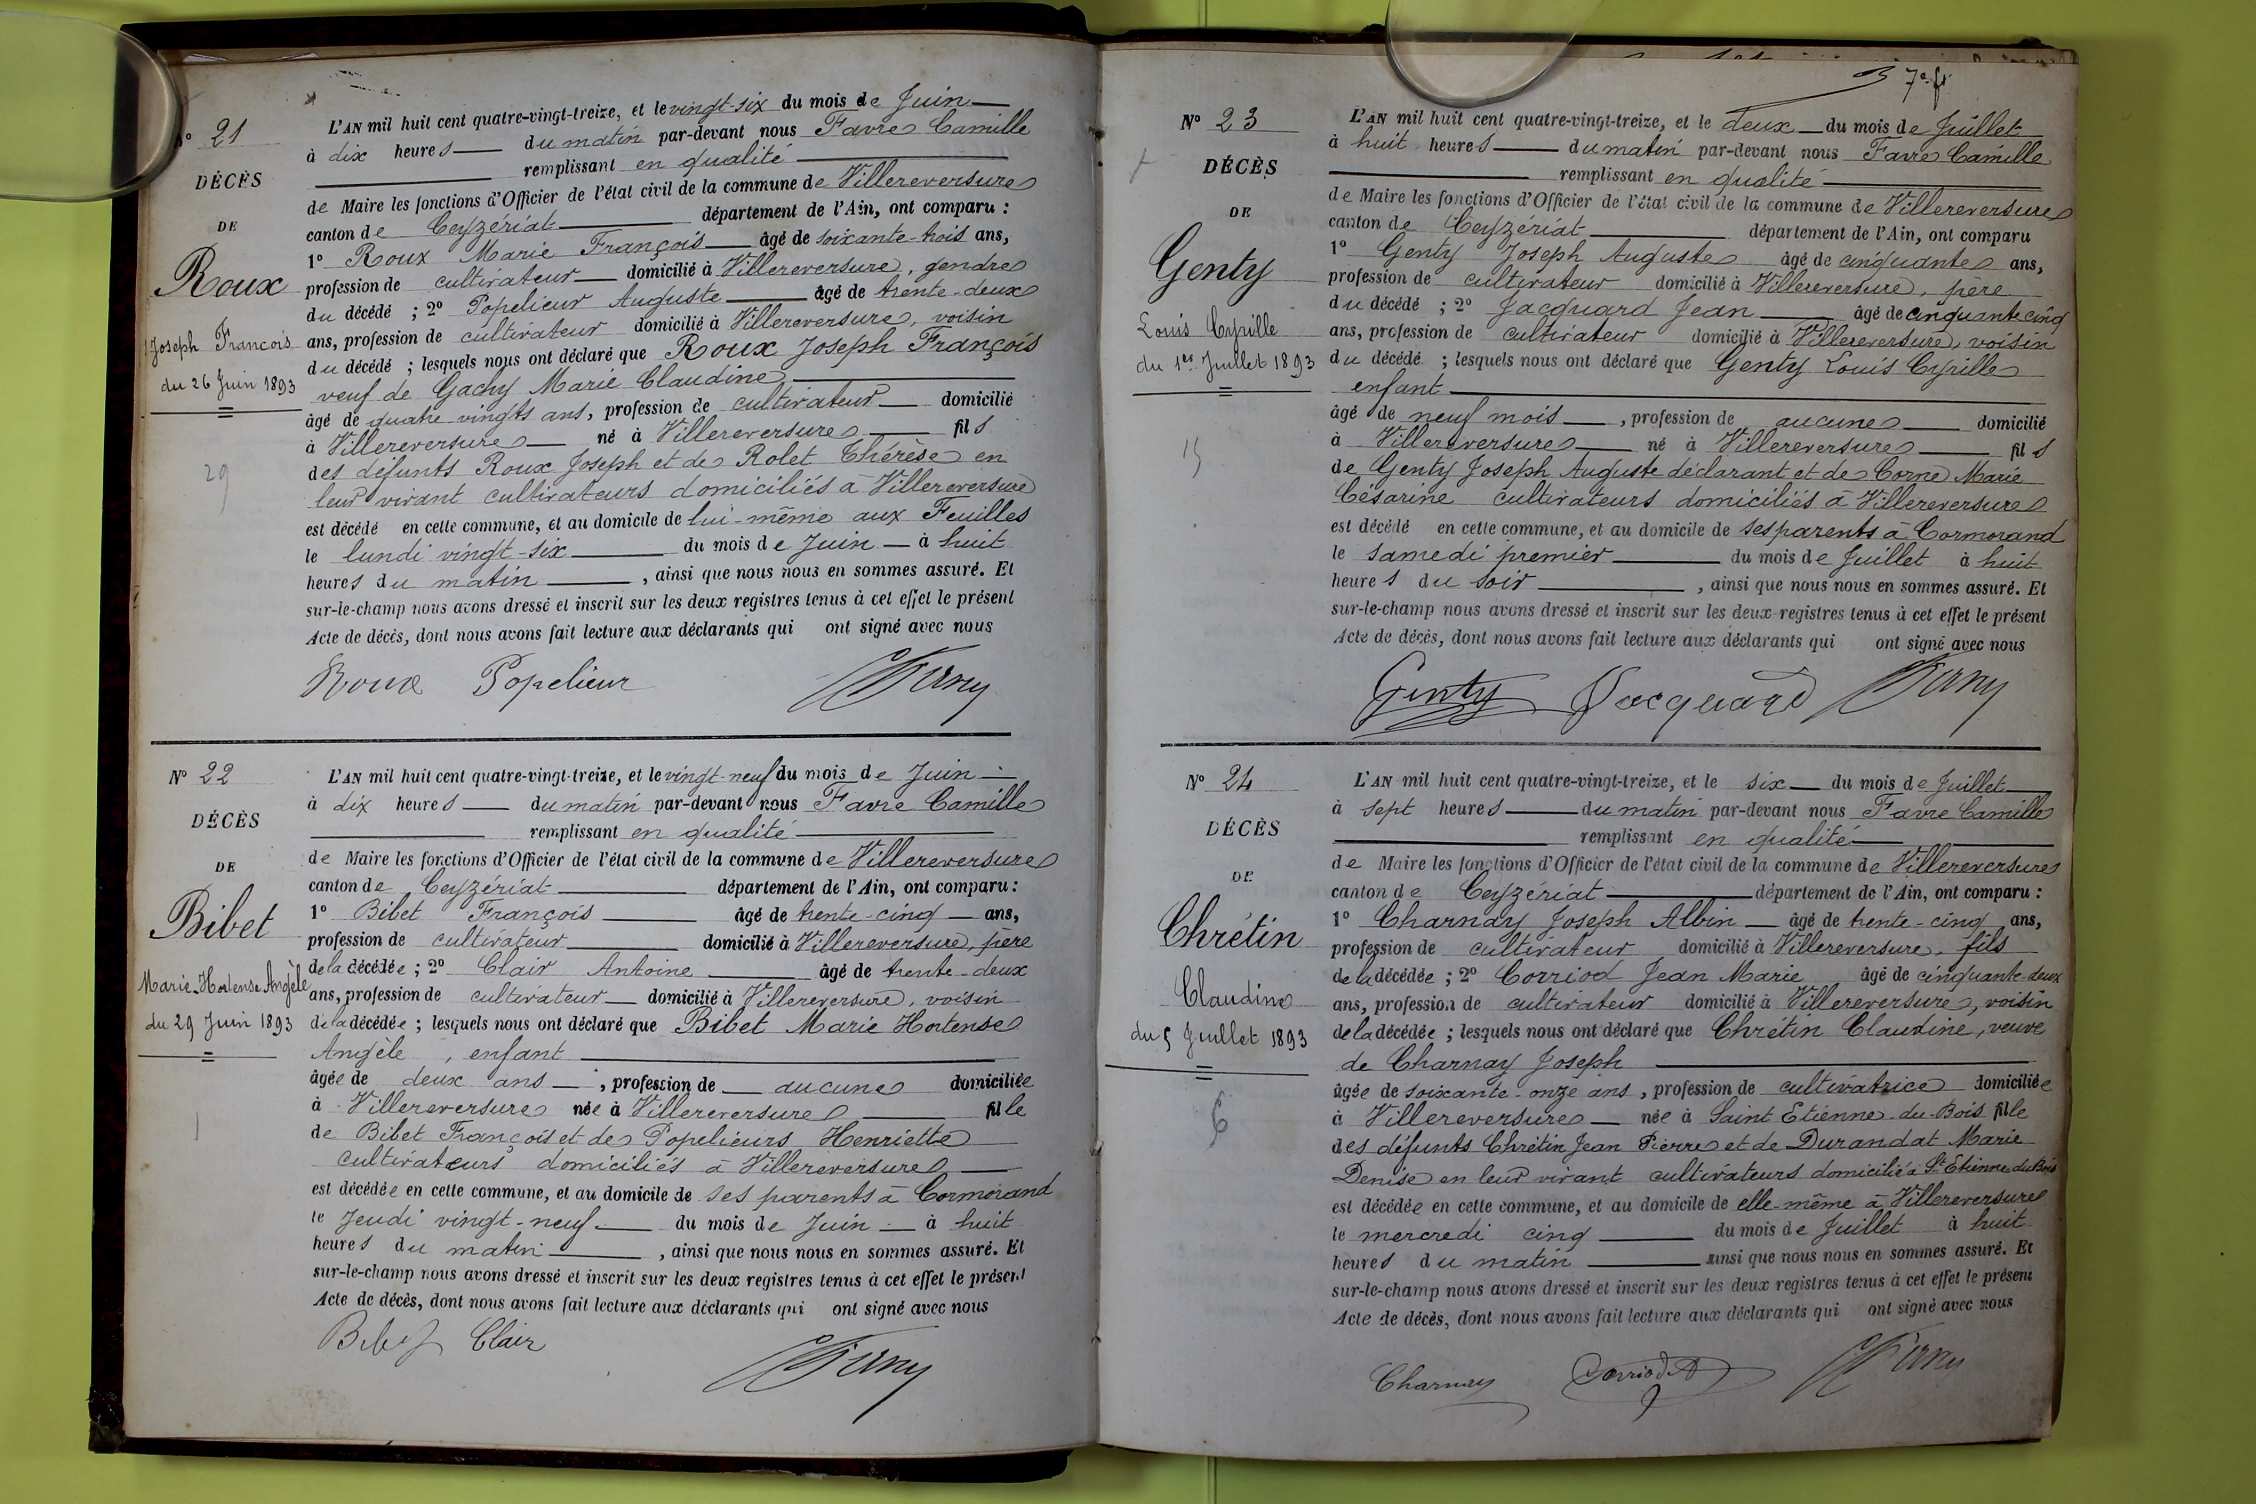 N° 21
DÉCÈS
DE
Roux
Joseph François
du 26 Juin 1893
29
L'AN mil huit cent quatre-vingt-treize, et le vingt-six du mois de Juin
à dix heures du matin par-devant nous Favre Camille
remplissant en qualité
de Maire les fonctions d'Officier de l'état civil de la commune de Villereversure
canton de Ceyzériat département de l'Ain, ont comparu :
1° Roux Marie François âgé de soixante-trois ans,
profession de cultivateur domicilié à Villereversure, gendre
du décédé ; 2° Popelieur Auguste âgé de trente-deux
ans, profession de cultivateur domicilié à Villereversure, voisin
du décédé ; lesquels nous ont déclaré que Roux Joseph François
veuf de Gachy Marie Claudine
âgé de quatre vingts ans, profession de cultivateur domicilié
à Villereversure né à Villereversure fils
des défunts Roux Joseph et de Rolet Thérèse en
leur vivant cultivateurs domiciliés à Villereversure
est décédé en cette commune, et au domicile de lui-même aux Feuilles
le lundi vingt-six du mois de Juin à huit
heures du matin , ainsi que nous nous en sommes assuré. Et
sur-le-champ nous avons dressé et inscrit sur les deux registres tenus à cet effet le présent
Acte de décès, dont nous avons fait lecture aux déclarants qui ont signé avec nous
Roux Popelieur
N° 22
DÉCÈS
DE
Bibet
Marie Hortense Angèle
du 29 Juin 1893
1
L'AN mil huit cent quatre-vingt-treize, et le vingt-neuf du mois de Juin
à dix heures du matin par-devant nous Favre Camille
remplissant en qualité
de Maire les fonctions d'Officier de l'état civil de la commune de Villereversure
canton de Ceyzériat département de l'Ain, ont comparu :
1° Bibet François âgé de trente-cinq ans,
profession de cultivateur domicilié à Villereversure, père
de la décédée ; 2° Clair Antoine âgé de trente-deux
ans, profession de cultivateur domicilié à Villereversure, voisin
de la décédée ; lesquels nous ont déclaré que Bibet Marie Hortense
Angèle, enfant
âgée de deux ans , profession de aucune domiciliée
à Villereversure née à Villereversure fille
de Bibet François et de Popelieurs Henriette
cultivateurs domiciliés à Villereversure
est décédée en cette commune, et au domicile de ses parents à Cormorand
le Jeudi vingt-neuf du mois de Juin à huit
heures du matin , ainsi que nous nous en sommes assuré. Et
sur-le-champ nous avons dressé et inscrit sur les deux registres tenus à cet effet le présent
Acte de décès, dont nous avons fait lecture aux déclarants qui ont signé avec nous
Bibet Clair
7e ft
N° 23
DÉCÈS
DE
Genty
Louis Cyrille
du 1er Juillet 1893
L'AN mil huit cent quatre-vingt-treize, et le deux du mois de Juillet
à huit heures du matin par-devant nous Favre Camille
remplissant en qualité
de Maire les fonctions d'Officier de l'état civil de la commune de Villereversure
canton de Ceyzériat département de l'Ain, ont comparu
1° Genty Joseph Auguste âgé de cinquante ans,
profession de cultivateur domicilié à Villereversure, père
du décédé ; 2° Jacquard Jean âgé de cinquante cinq
ans, profession de cultivateur domicilié à Villereversure, voisin
du décédé ; lesquels nous ont déclaré que Genty Louis Cyrille
enfant
âgé de neuf mois , profession de aucune domicilié
à Villereversure né à Villereversure fils
de Genty Joseph Auguste déclarant et de Corne Marie
Césarine cultivateurs domiciliés à Villereversure
est décédé en cette commune, et au domicile de ses parents à Cormorand
le samedi premier du mois de Juillet à huit
heures du soir , ainsi que nous nous en sommes assuré. Et
sur-le-champ nous avons dressé et inscrit sur les deux registres tenus à cet effet le présent
Acte de décès, dont nous avons fait lecture aux déclarants qui ont signé avec nous
Genty Jacquard
N° 24
DÉCÈS
DE
Chrétin
Claudine
du 5 Juillet 1893
L'AN mil huit cent quatre-vingt-treize, et le six du mois de Juillet
à sept heures du matin par-devant nous Favre Camille
remplissant en qualité
de Maire les fonctions d'Officier de l'état civil de la commune de Villereversure
canton de Ceyzériat département de l'Ain, ont comparu :
1° Charnay Joseph Albin âgé de trente-cinq ans,
profession de cultivateur domicilié à Villereversure, fils
de la décédée ; 2° Corriod Jean Marie âgé de cinquante deux
ans, profession de cultivateur domicilié à Villereversure, voisin
de la décédée ; lesquels nous ont déclaré que Chrétin Claudine, veuve
de Charnay Joseph
âgée de soixante-onze ans, profession de cultivatrice domiciliée
à Villereversure née à Saint Etienne-du-Bois fille
des défunts Chrétin Jean Pierre et de Durandat Marie
Denise en leur vivant cultivateurs domicilié à St Etienne du Bois
est décédée en cette commune, et au domicile de elle-même à Villereversure
le mercredi cinq du mois de Juillet à huit
heures du matin ainsi que nous nous en sommes assuré. Et
sur-le-champ nous avons dressé et inscrit sur les deux registres tenus à cet effet le présent
Acte de décès, dont nous avons fait lecture aux déclarants qui ont signé avec nous
Charnay Corriod